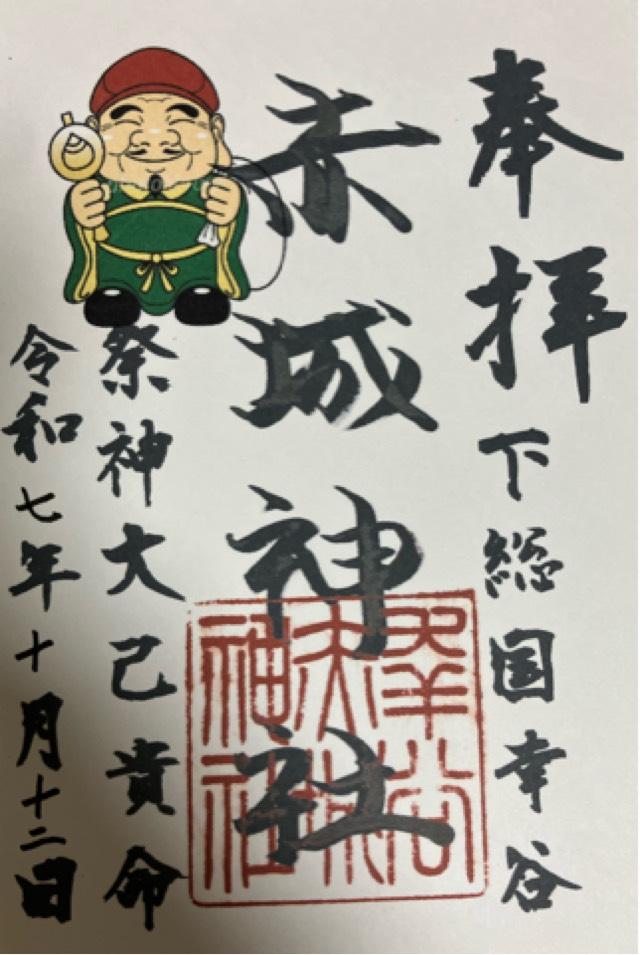 奉拝
下総国幸谷
赤城神社
幸谷
赤城
神社
祭神大己貴命
令和七年十月十二日